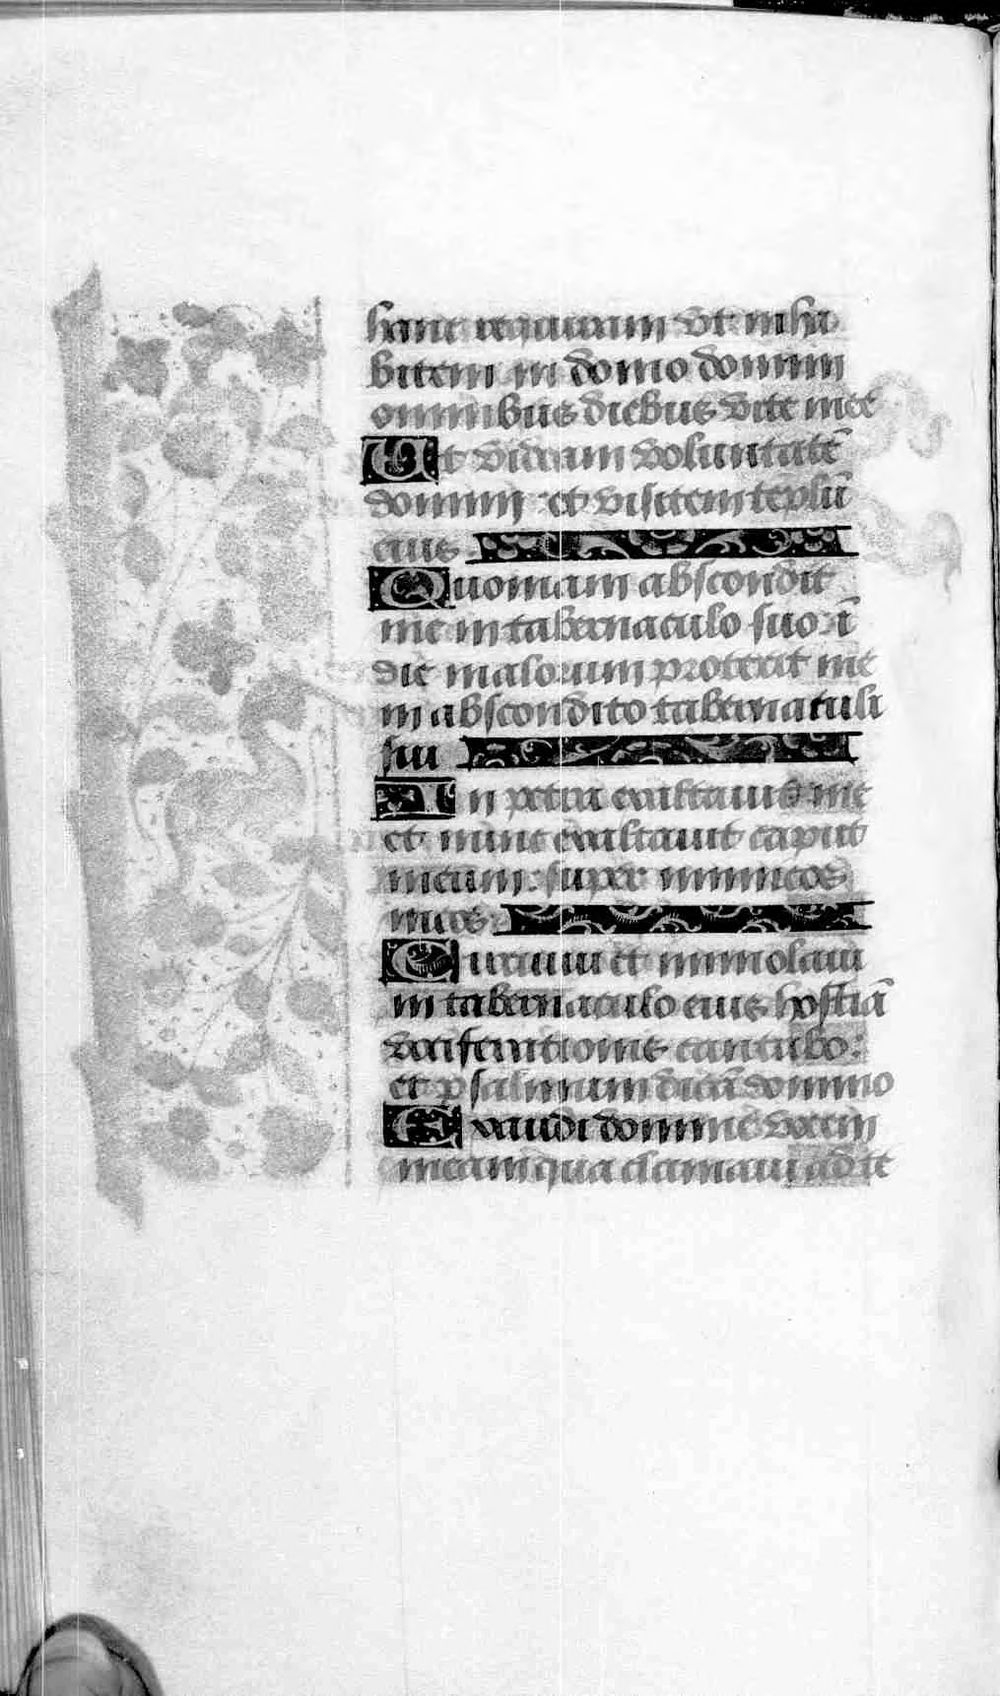 hanc requiram vt inha
bitem in domo domini
omnibus diebus vite mee
Ut videam voluntatē
domini et visitem teplū
eius
Quoniam abscondit
me in tabernaculo suo ī
die malorum protexit me
in abscondito tabernaculi
sui
In petra exaltauit me
et nunc exaltauit caput
meum super inimicos
meos
Circuiui et immolaui
in tabernaculo eius hostiā
vociferationis cantabo:
et psalmum dicā domino
Exaudi domine vocem
meam qua clamaui ad te